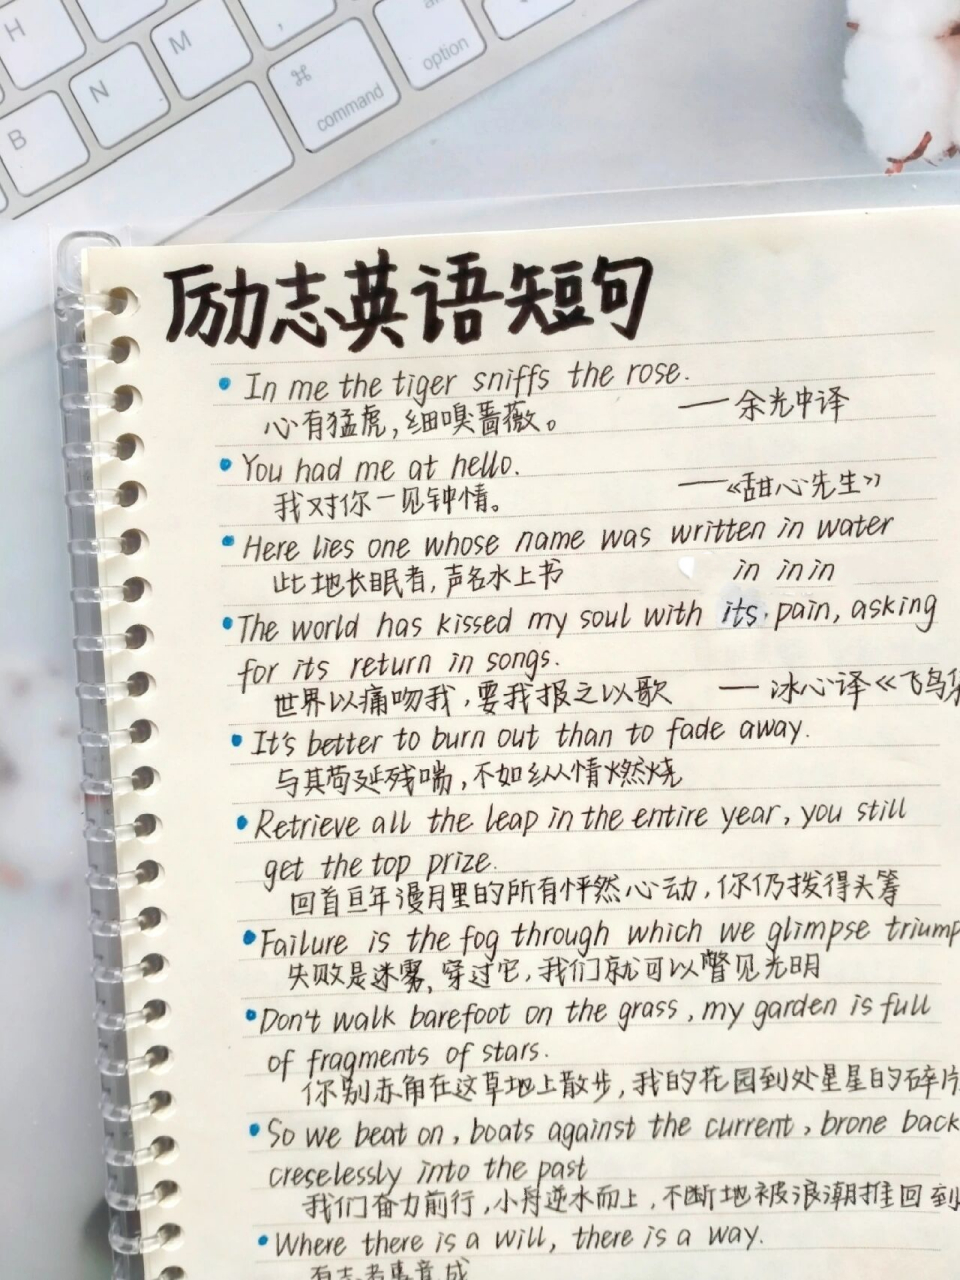 H
B
N
M
,
⌘
command
option
励志英语短句
In me the tiger sniffs the rose.
心有猛虎,细嗅蔷薇。 ——余光中译
You had me at hello.
我对你一见钟情。 ——《甜心先生》
Here lies one whose name was written in water
此地长眠者,声名水上书 in in in
The world has kissed my soul with its pain, asking
for its return in songs.
世界以痛吻我,要我报之以歌 —冰心译《飞鸟
It's better to burn out than to fade away.
与其苟延残喘,不如纵情燃烧
Retrieve all the leap in the entire year, you still
get the top prize.
回首亘年漫月里的所有怦然心动,你仍拔得头筹
Failure is the fog through which we glimpse triump
失败是迷雾,穿过它,我们就可以瞥见光明
Don't walk barefoot on the grass, my garden is full
of fragments of stars.
你别赤角在这草地上散步,我的花园到处星星的碎片
So we beat on, boats against the current, brone back
creselessly into the past
我们奋力前行,小舟逆水而上,不断地被浪潮推回到
Where there is a will, there is a way.
有志者事竟成